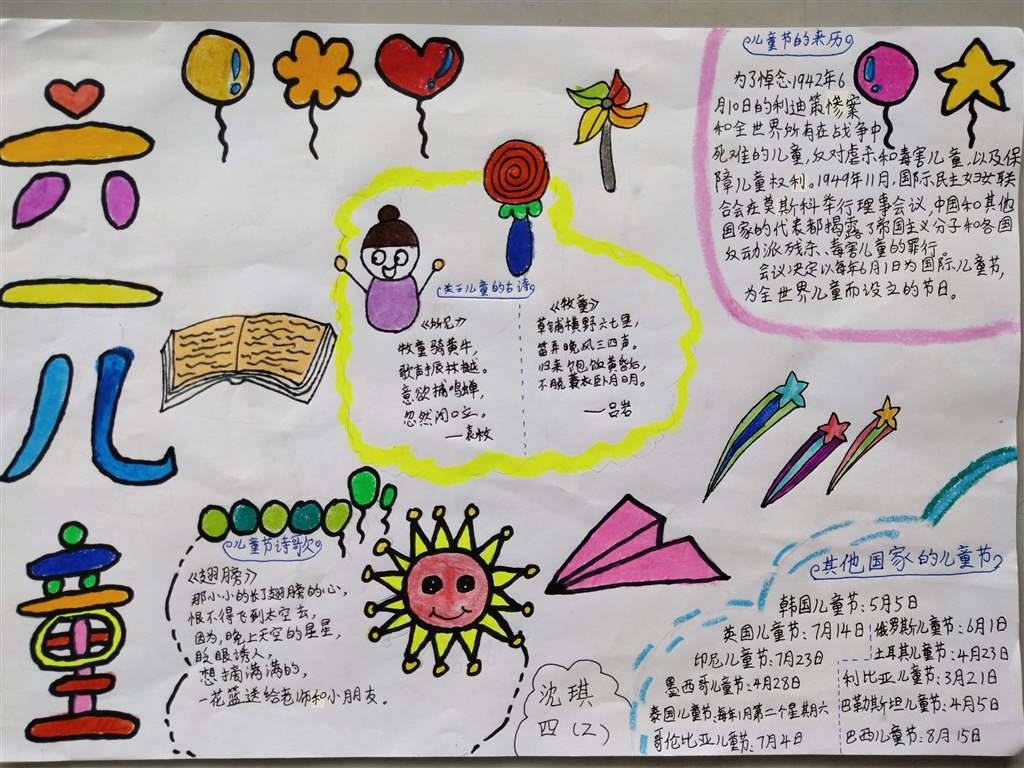 六
一
儿
童
儿童节的来历
为了悼念1942年6
月10日的利迪策惨案
和全世界所有在战争中
死难的儿童,反对虐杀和毒害儿童,以及保
障儿童权利。1949年11月,国际民主妇女联
合会在莫斯科举行理事会议,中国和其他
国家的代表都揭露了帝国主义分子和各国
反动派残杀、毒害儿童的罪行。
会议决定以每年6月1日为国际儿童节,
为全世界儿童而设立的节日。
关于儿童的古诗
《所见》
牧童骑黄牛,
歌声振林樾。
意欲捕鸣蝉,
忽然闭口立。
—袁枚
《牧童》
草铺横野六七里,
笛弄晚风三四声。
归来饱饭黄昏后,
不脱蓑衣卧月明。
—吕岩
儿童节诗歌
《翅膀》
那小小的长了翅膀的心,
恨不得飞到太空去,
因为,晚上天空的星星,
眨眼诱人,
想摘满满的,
一花篮送给老师和小朋友。
沈琪
四(2)
其他国家的儿童节
韩国儿童节:5月5日
英国儿童节:7月14日
印尼儿童节:7月23日
墨西哥儿童节:4月28日
泰国儿童节:每年1月第二个星期六
哥伦比亚儿童节:7月4日
俄罗斯儿童节:6月1日
土耳其儿童节:4月23日
利比亚儿童节:3月21日
巴勒斯坦儿童节:4月5日
巴西儿童节:8月15日